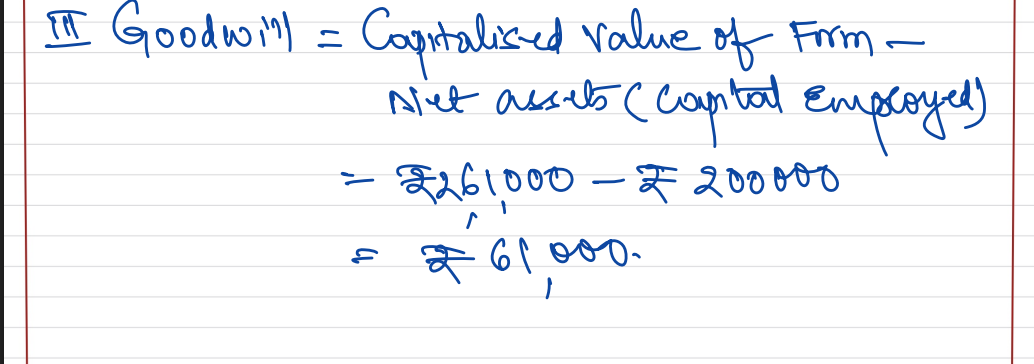 III Goodwill = Capitalised Value of Firm –
Net assets (Capital Employed)
= ₹261,000 – ₹ 200000
= ₹ 61,000.